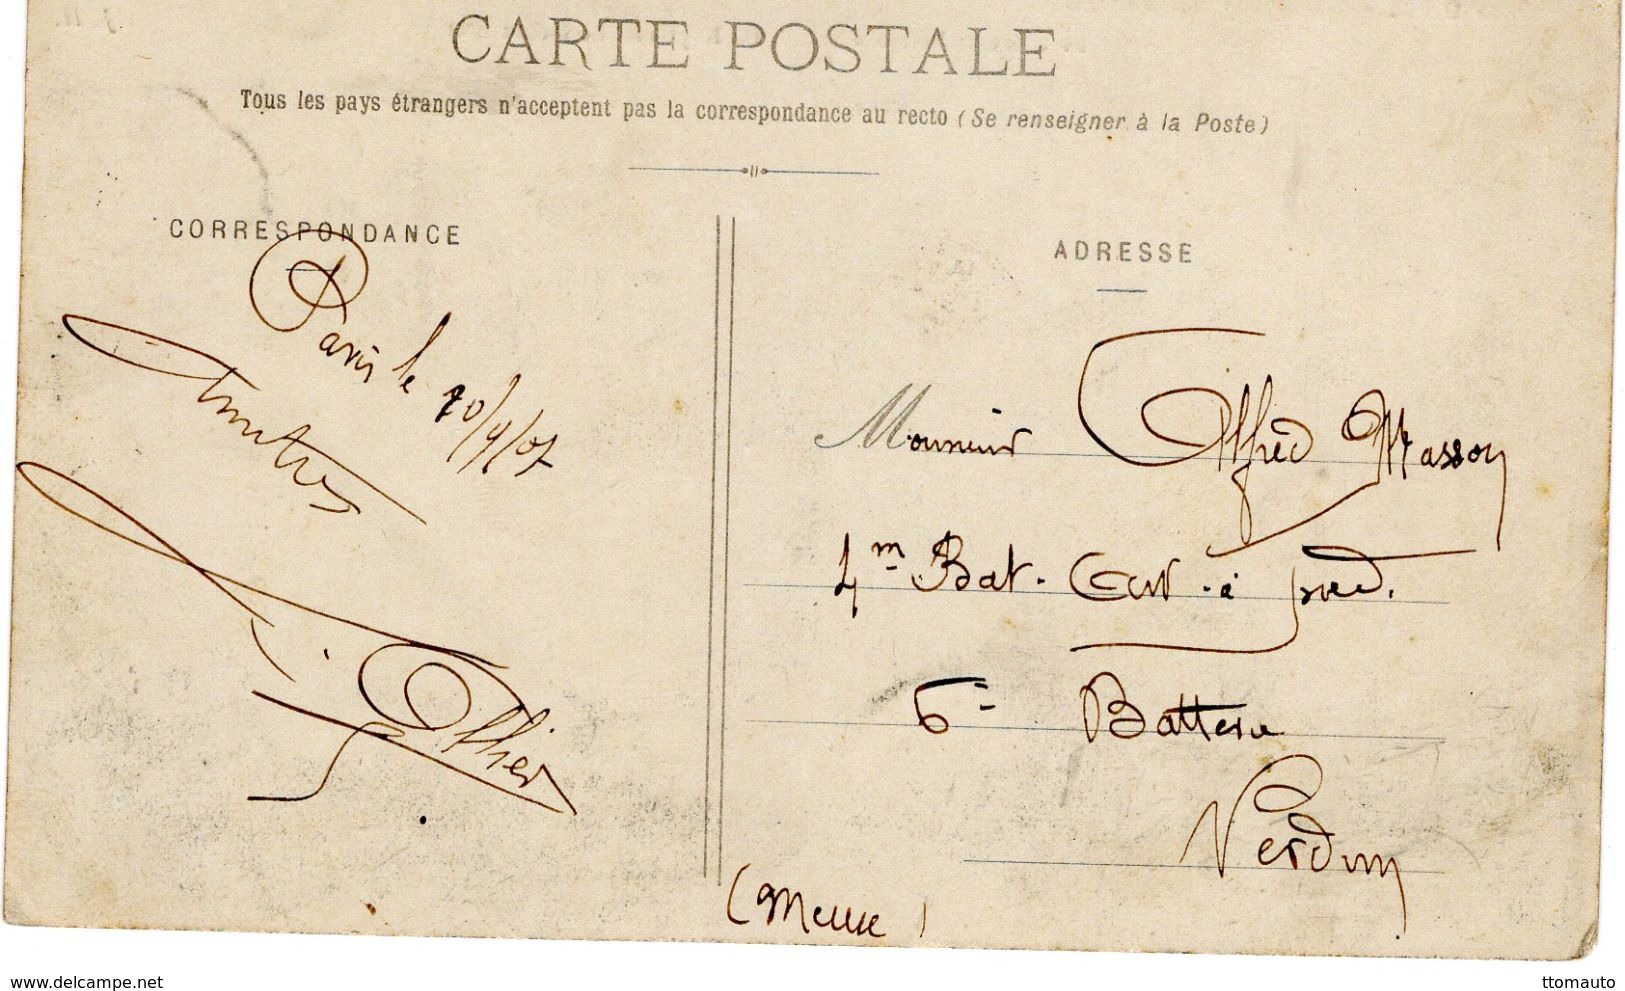 CARTE POSTALE
Tous les pays étrangers n'acceptent pas la correspondance au recto (Se renseigner à la Poste)
CORRESPONDANCE
Paris le 20/9/07
Ollier
ADRESSE
Monsieur Alfred Masson
4m Bat. Art. à pied.
6e Batterie
Verdun
(Meuse)
www.delcampe.net
ttomauto